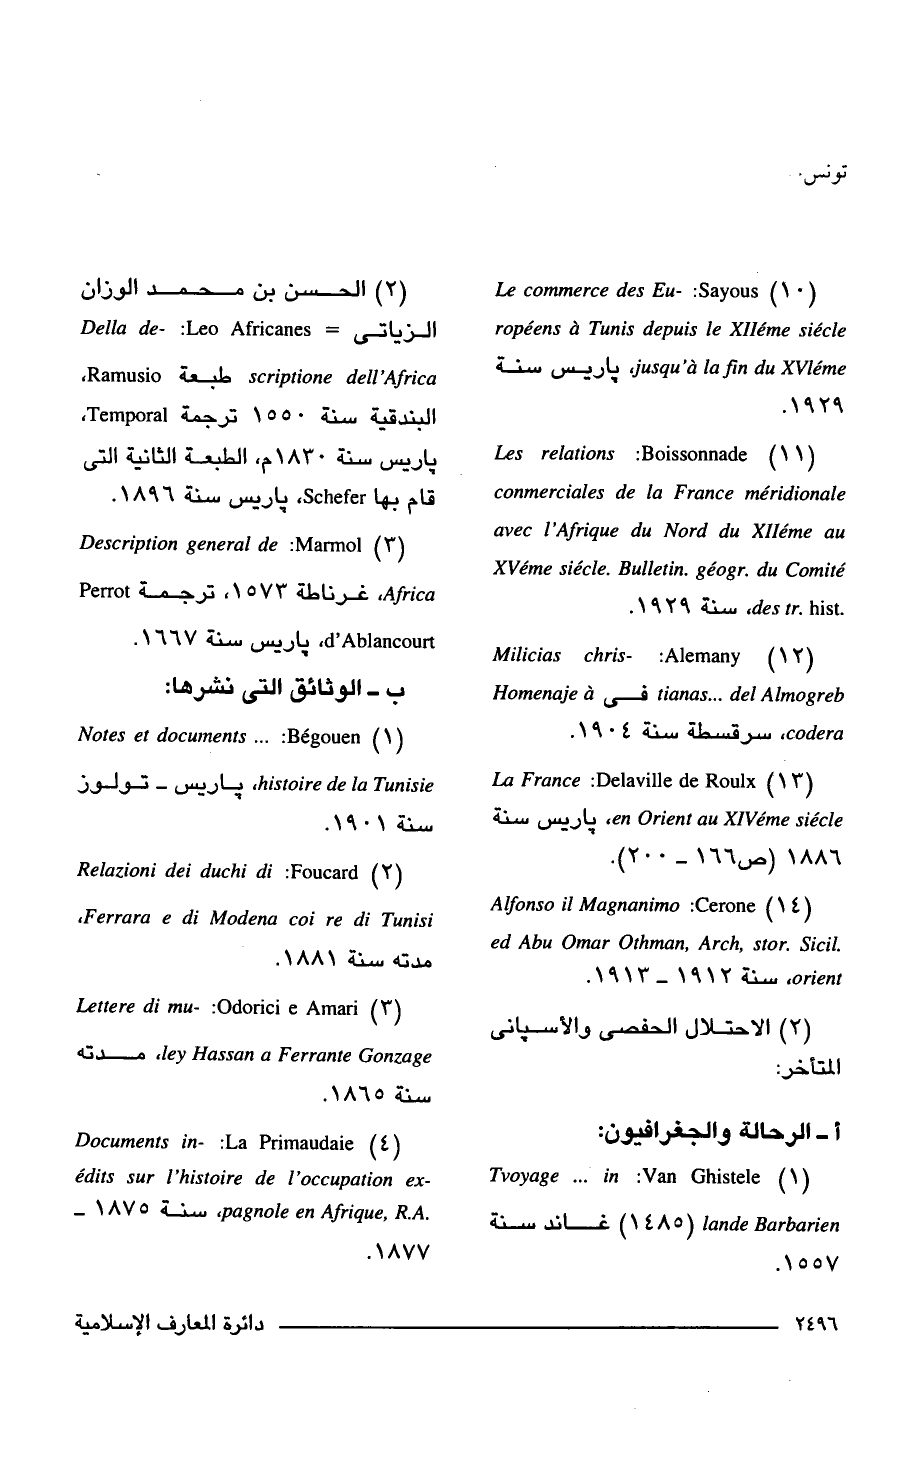 تونس.
(١٠) Sayous: Le commerce des Eu-
ropéens à Tunis depuis le XIIéme siécle
jusqu'à la fin du XVIéme، پاريس سنة
١٩٢٩.
(١١) Boissonnade: Les relations
conmerciales de la France méridionale
avec l'Afrique du Nord du XIIéme au
XVéme siécle. Bulletin. géogr. du Comité
des tr. hist.، سنة ١٩٢٩.
(١٢) Alemany: Milicias chris-
tianas... del Almogreb فى Homenaje à
codera، سرقسطة سنة ١٩٠٤.
(١٣) Delaville de Roulx: La France
en Orient au XIVéme siécle، پاريس سنة
١٨٨٦ (ص١٦٦ – ٢٠٠).
(١٤) Cerone: Alfonso il Magnanimo
ed Abu Omar Othman, Arch, stor. Sicil.
orient، سنة ١٩١٢ – ١٩١٣.
(٢) الاحتلال الحفصى والأسپانى
المتأخر:
أ – الرحالة والجغرافيون:
(١) Van Ghistele: Tvoyage ... in
lande Barbarien (١٤٨٥) غاند سنة
١٥٥٧.
(٢) الحسن بن محمد الوزان
الزياتى = Leo Africanes: Della de-
scriptione dell'Africa طبعة Ramusio،
البندقية سنة ١٥٥٠ ترجمة Temporal،
پاريس سنة ١٨٣٠م، الطبعة الثانية التى
قام بها Schefer، پاريس سنة ١٨٩٦.
(٣) Marmol: Description general de
Africa، غرناطة ١٥٧٣، ترجمة Perrot
d'Ablancourt، پاريس سنة ١٦٦٧.
ب – الوثائق التى نشرها:
(١) Bégouen: Notes et documents ...
histoire de la Tunisie، پاريس – تولوز
سنة ١٩٠١.
(٢) Foucard: Relazioni dei duchi di
Ferrara e di Modena coi re di Tunisi،
مدته سنة ١٨٨١.
(٣) Odorici e Amari: Lettere di mu-
ley Hassan a Ferrante Gonzage، مدته
سنة ١٨٦٥.
(٤) La Primaudaie: Documents in-
édits sur l'histoire de l'occupation ex-
pagnole en Afrique, R.A.، سنة ١٨٧٥ –
١٨٧٧.
٢٤٩٦ دائرة المعارف الإسلامية